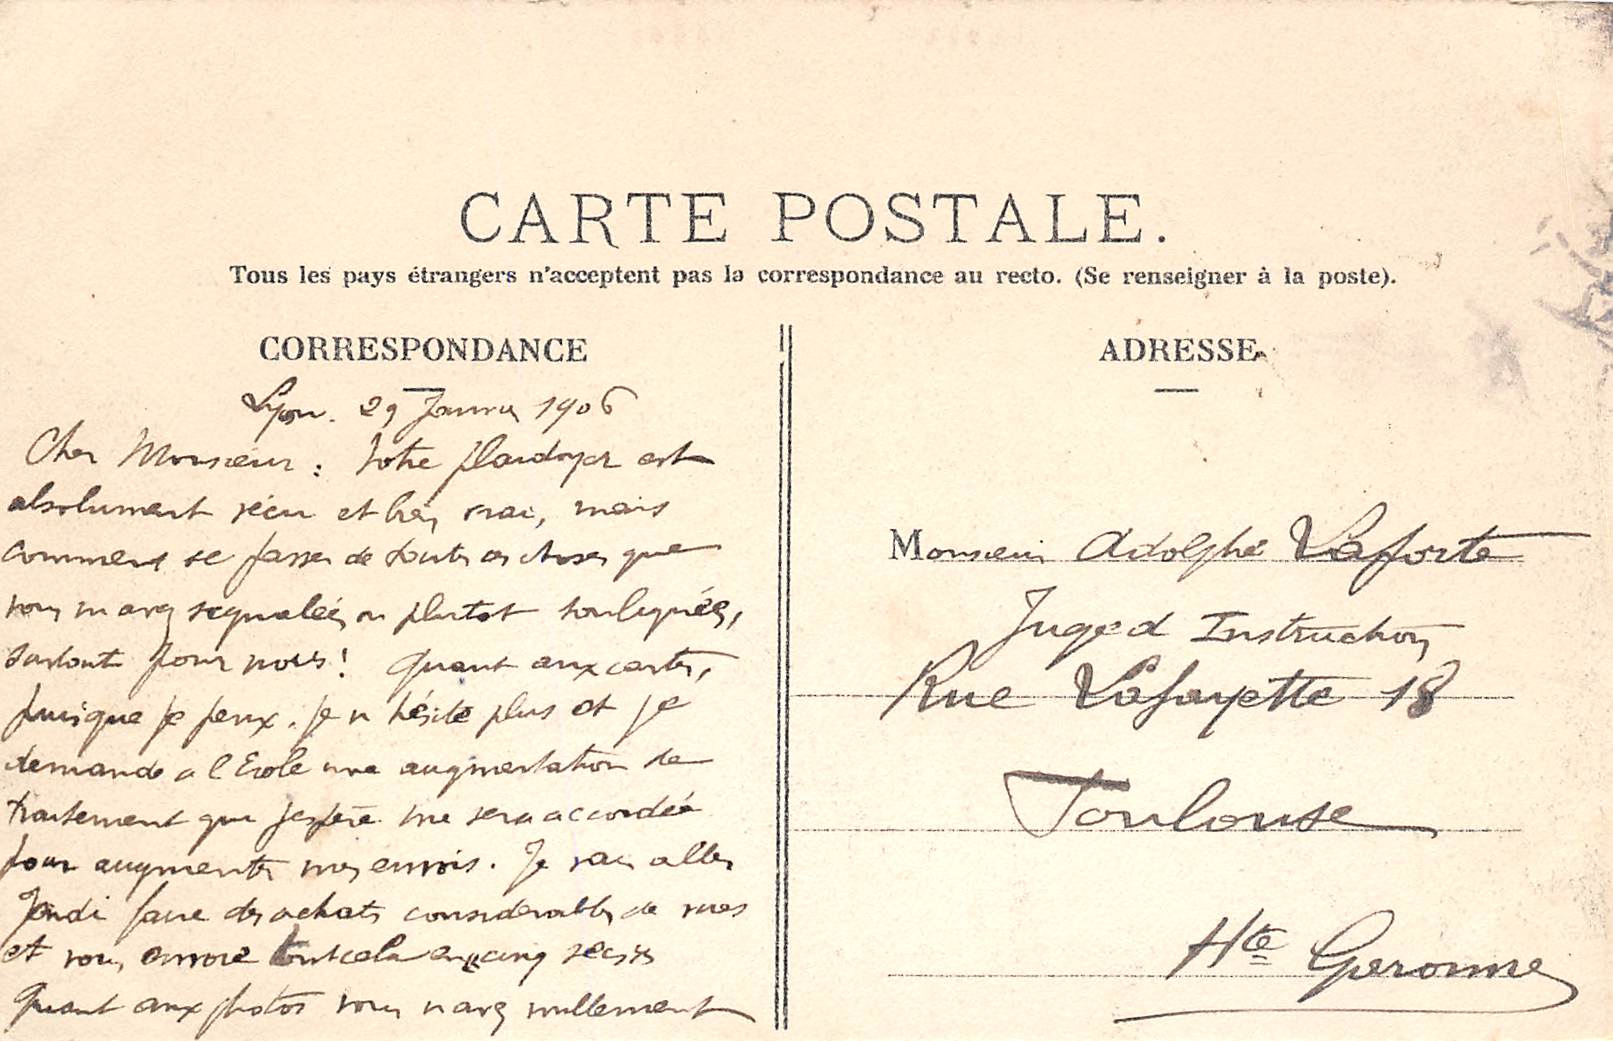 CARTE POSTALE.
Tous les pays étrangers n'acceptent pas la correspondance au recto. (Se renseigner à la poste).
CORRESPONDANCE
Lyon. 29 Janvier 1906
Cher Monsieur : Votre plaidoyer est
absolument vécu et bien vrai, mais
comment se passer de toutes ces choses que
vous m'avez signalées ou plutot soulignées,
surtout pour nous ! Quant aux cartes,
puisque je peux. je n'hésite plus et je
demande a l'Ecole une augmentation de
traitement que j'espère me sera accordée
pour augmenter mes envois. Je vais aller
Jeudi faire des achats considerables de vues
et vous envoie tout cela en cinq
Quant aux photos vous n'avez nullement
ADRESSE
Monsieur Adolphe Laforte
Juge d Instruction
Rue Lafayette 18
Toulouse
Hte Garonne